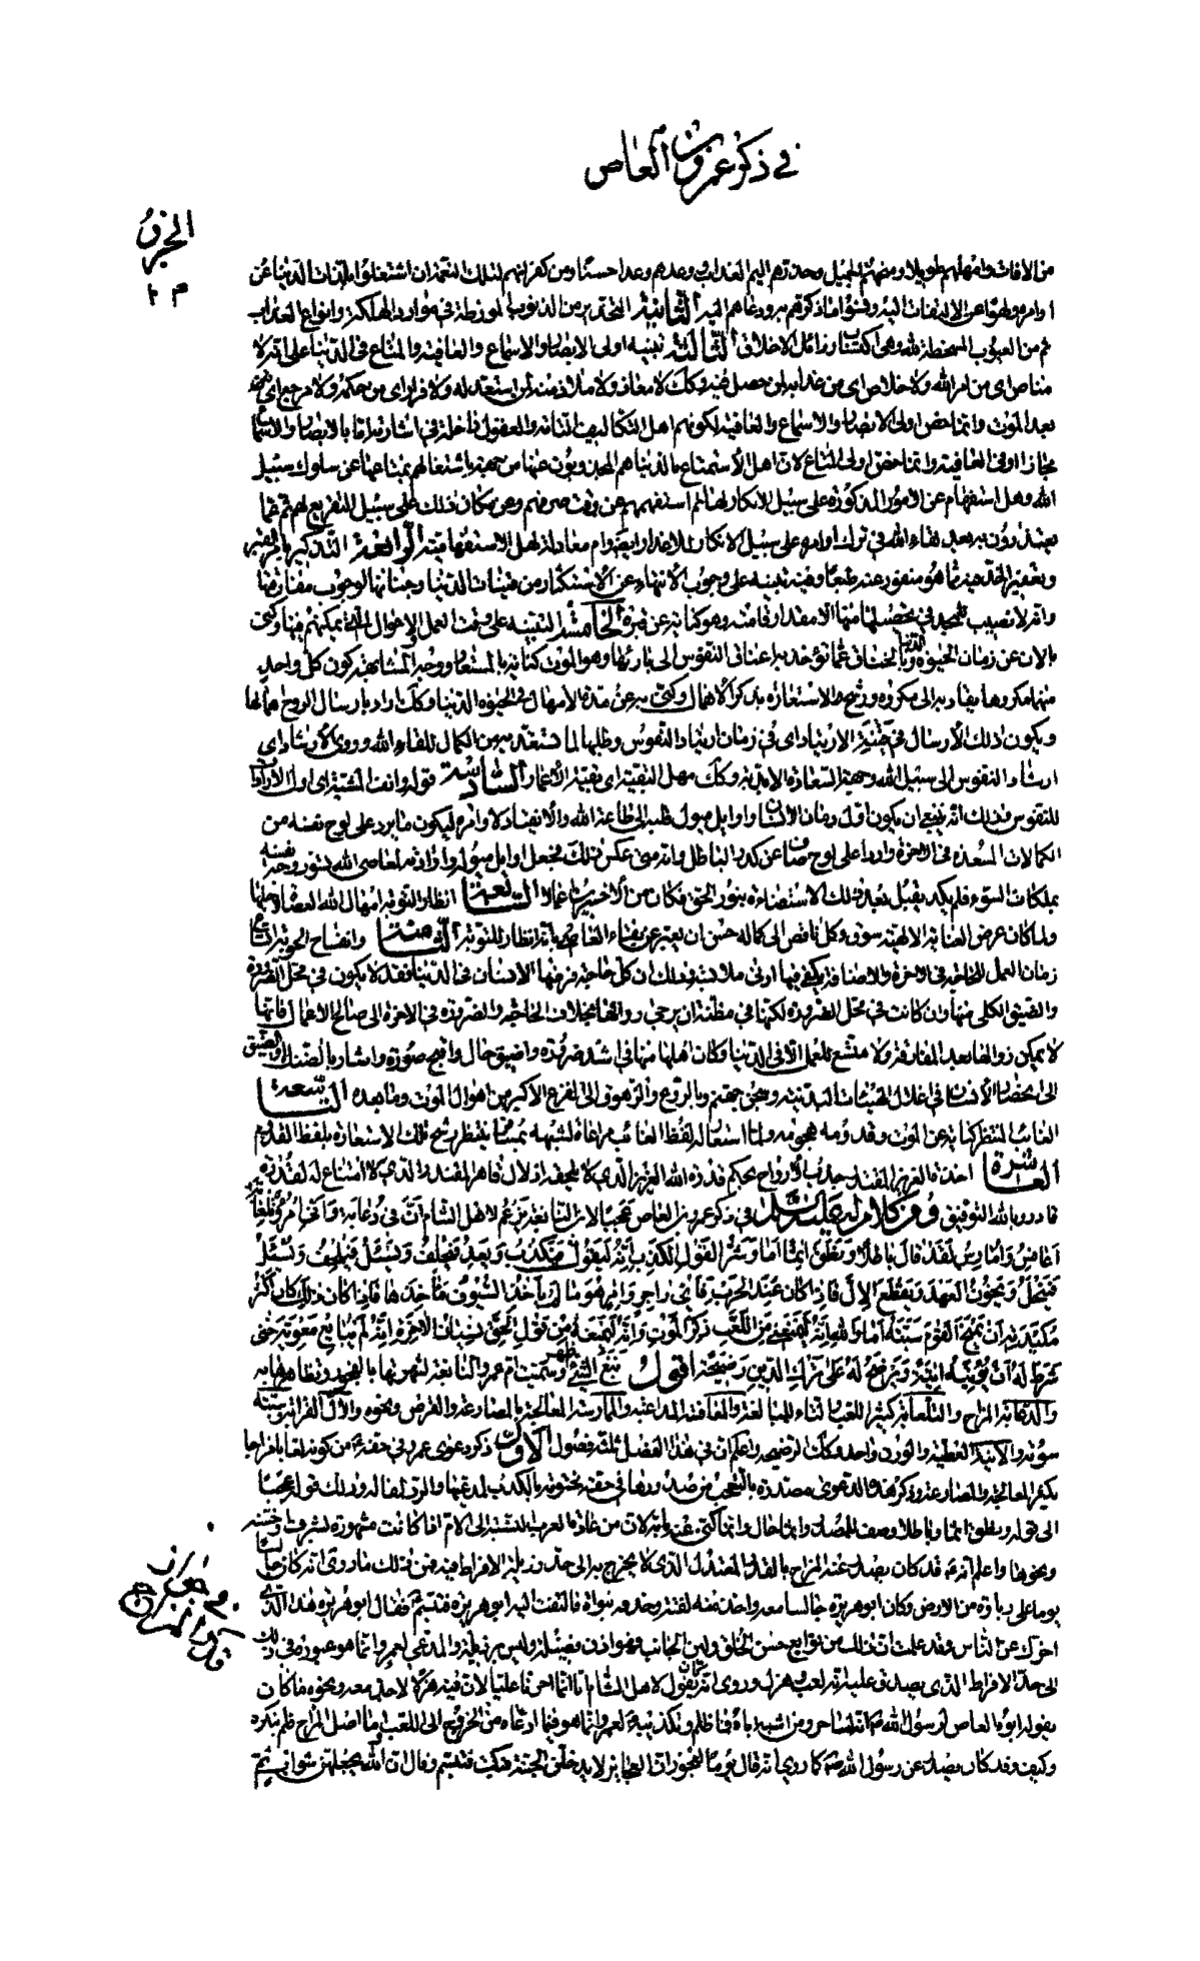 في ذكر عمرو بن العاص
الجزء
من الافات وامهلهم طويلا ومنحهم الجميل وحذرهم اليم العذاب ووعدهم وعدا حسنا ومن كفرانهم لتلك النعم ان اشتغلوا بلذات الدنيا عن
اوامره ولهوا عن الالتفات اليه ونسوا ما ذكرهم به ودعاهم اليه الثانية التحذير من الذنوب المورطة في موارد الهلكة وانواع العذاب
ثم من العيوب المسخطة لله وهي اكتساب رذائل الاخلاق الثالثة تنبيه اولى الابصار والاسماع والعافية والمتاع في الدنيا على انه لا
مناص اى من امر الله ولا خلاص اى من عذابه لمن حصل فيه وكك لا معاذ ولا ملاذ منه لمن يستعد له ولا فرار اى من حكمه ولا مرجع اى
بعد الموت وانما خص اولى الابصار والاسماع والعافية لكونهم اهل التكاليف التامة والعقول داخلة في اشارته اما بالابصار والاسماع
مجازا او في العافية وانما خص اولى المتاع لان اهل الاستمتاع بالدنيا هم المجذوبون عنها من جهة اشتغالهم بمتاعها عن سلوك سبيل
الله وهل استفهام عن الامور المذكورة على سبيل الانكار لها ثم استفهمهم عن وقت صرفهم وعن مكان ذلك على سبيل التقريع لهم ثم عما
يعتذرون به بعد لقاء الله في ترك اوامره على سبيل الانكار للاعذار ايضا وام معادلة لهل الاستفهامية الرابعة التذكير بامر القبر
وتعفير الخد فيه مما هو منفور عنه طبعا وفيه تنبيه على وجوب الانتهاء عن الاستكثار من قينات الدنيا وجناتها لوجوب مفارقتها
وانه لا نصيب للمجد في تحصيلها منها الا مقدار قامته وهو كناية عن قبره الخامسة التنبيه على وقت العمل والاحوال التي يمكنهم فيها وكنى
بالان عن زمان الحيوة الدنيا وبالخناق عما تؤخذ به اعناق النفوس الى بارئها وهو الموت كناية بالمستعار ووجه المشابهة كون كل واحد
منهما مكروها يقاد به الى مكروه ورشح الاستعارة بذكر الاهمال وكنى به عن مدة الامهال في الحيوة الدنيا وكك اراد بارسال الروح اهمالها
ويكون ذلك الارسال في فينة الارتياد اى في زمان ارتياد النفوس وطلبها لما تستعد به من الكمال للقاء الله وروى الارشاد اى
ارشاد النفوس الى سبيل الله وجهة السعادة الابدية وكك مهل البقية اى بقية الاعمار السادسة قوله وانف المشية اى اول الارادات
للنفوس وذلك انه ينبغي ان يكون اول زمان الانسان واوايل ميول قلبه الى طاعة الله والانقياد لاوامره ليكون ما يرد على لوح نفسه من
الكمالات المسعدة في الاخرة واردا على لوح صاف عن كدر الباطل وانه متى عكس ذلك فجعل اوايل ميوله وارادته لمعاصى الله تسود وجه نفسه
بملكات السوء فلم يكد يقبل بعد ذلك الاستضاءة بنور الحق فكان من الاخسرين اعمالا السابعة انظار التوبة امهال الله العصاة لاجلها
ولما كان عرض العناية الالهية سوق وكل ناقص الى كماله حسن ان يعبر عن بقاء العاصى بانه انظار للتوبة الثامنة وانفساح الحوبة اتساع
زمان العمل للحاجة في الاخرة والاضافة يكفى فيها ادنى ملابسة وذلك ان كل حاجة فرضها الانسان في الدنيا فقد لا يكون في محل الضرورة
والضيق الكلى منها وان كانت في محل الضرورة لكنها في مظنة ان يرجى زوالها بخلاف الحاجة والضرورة في الاخرة الى صالح الاعمال فانها
لا يمكن زوالها بعد المفارقة ولا متسع للعمل الا في الدنيا وكان اهلها منها في اشد ضرورة واضيق حال واقبح صورة واشار بالضنك والمضيق
الى انحصار الانسان في اغلال الهيئات البدنية وسجن جهنم وبالروع والزهوق الى الفزع الاكبر من اهوال الموت وما بعده التاسعة
الغائب المنتظر كناية عن الموت وقدومه هجومه ولما استعار له لفظ الغائب مراعاة لشبهه بمسافر ينتظر رشح تلك الاستعارة بلفظ القدوم
العاشرة اخذة العزيز المقتدر جذب الارواح بحكم قدرة الله العزيز الذى لا يلحقه اذلال قاهر المقتدر الذى لا امتناع له لقدرته
قادر وبالله التوفيق ومن كلام له عليه السلام في ذكر عمرو بن العاص عجبا لابن النابغة يزعم لاهل الشام ان في دعابة وانى امرؤ تلعابة
اعافس وامارس لقد قال باطلا ونطق اثما اما وشر القول الكذب انه ليقول فيكذب ويعد فيخلف ويسئل فيلحف ويسئل
فيبخل ويخون العهد ويقطع الال فاذا كان عند الحرب فاى زاجر وامر هو ما لم ياخذ السيوف ماخذها فاذا كان ذلك كان اكبر
مكيدته ان يمنح القوم سبته اما والله انه ليمنعنى من اللعب ذكر الموت وانه ليمنعه من قول الحق نسيان الاخرة انه لم يبايع معوية حتى
شرط له ان يؤتيه اتية ويرضخ له على ترك الدين رضيخة اقول نبغ الشئ ظهر وسميت ام عمرو النابغة لشهرتها بالفجور وتظاهرها به
والدعابة المزاح والتلعابة كثير اللعب والتاء للمبالغة والمعافسة المداعبة والممارسة المعالجة بالمصارعة والقرص ونحوه والال القرابة وسبته
سوءته والاتية العطية والوزن واحد وكك الرضيخة واعلم ان في هذا الفصل ثلثة فصول الاول ذكر دعوى عمرو في حقه ع من كونه لعابا مزاحا
يكثر المعالجة والمصارعة وذكر هذه الدعوى مصدرة بالتعجب من صدورها في حقه مختومة بالكذب لمدعيها والرد لمقاله وذلك قوله عجبا
الى قوله ونطق اثما وباطلا وصف للمصدر واثما حال وانما كنى عنه بامه لان من عادة العرب النسبة الى الام اذا كانت مشهورة بشرف او خسة
ونحوهما واعلم انه ع قد كان يصدر عنه المزاح بالقدر المعتدل الذى لا يخرج به الى حد رذيلة الافراط فيه فمن ذلك ما روى انه كان جالسا
يوما على رباوة من الارض وكان ابو هريرة جالسا معه واخذ منه لفتة وحذفه بنواة فالتفت اليه ابو هريرة فتبسم ع فقال ابو هريرة هذا الذى
اخرك عن الناس وقد علمت ان ذلك من توابع حسن الخلق ولين الجانب وهو اذن فضيلة وليس برذيلة والمدعى لعمرو انما هو عبوره في ذلك
الى حد الافراط الذى يصدق عليه انه لعب وهزل وروى انه كان يقول لاهل الشام انا انما اخرنا عليا لان فيه هزلا لا جد معه ونحوه ما كان
يقوله ابوه العاص لرسول الله ص انه لساحر ومن اشبه اباه فما ظلم وتكذيبه ع لعمرو انما هو فيما ادعاه من الخروج الى اللعب واما اصل المزاح فلم ينكره
وكيف وقد كان يصدر عن رسول الله ص كما روى انه قال يوما لعجوز ان العجايز لا يدخلن الجنة فبكت فتبسم وقال ان الله يجعلهن شواب ثم